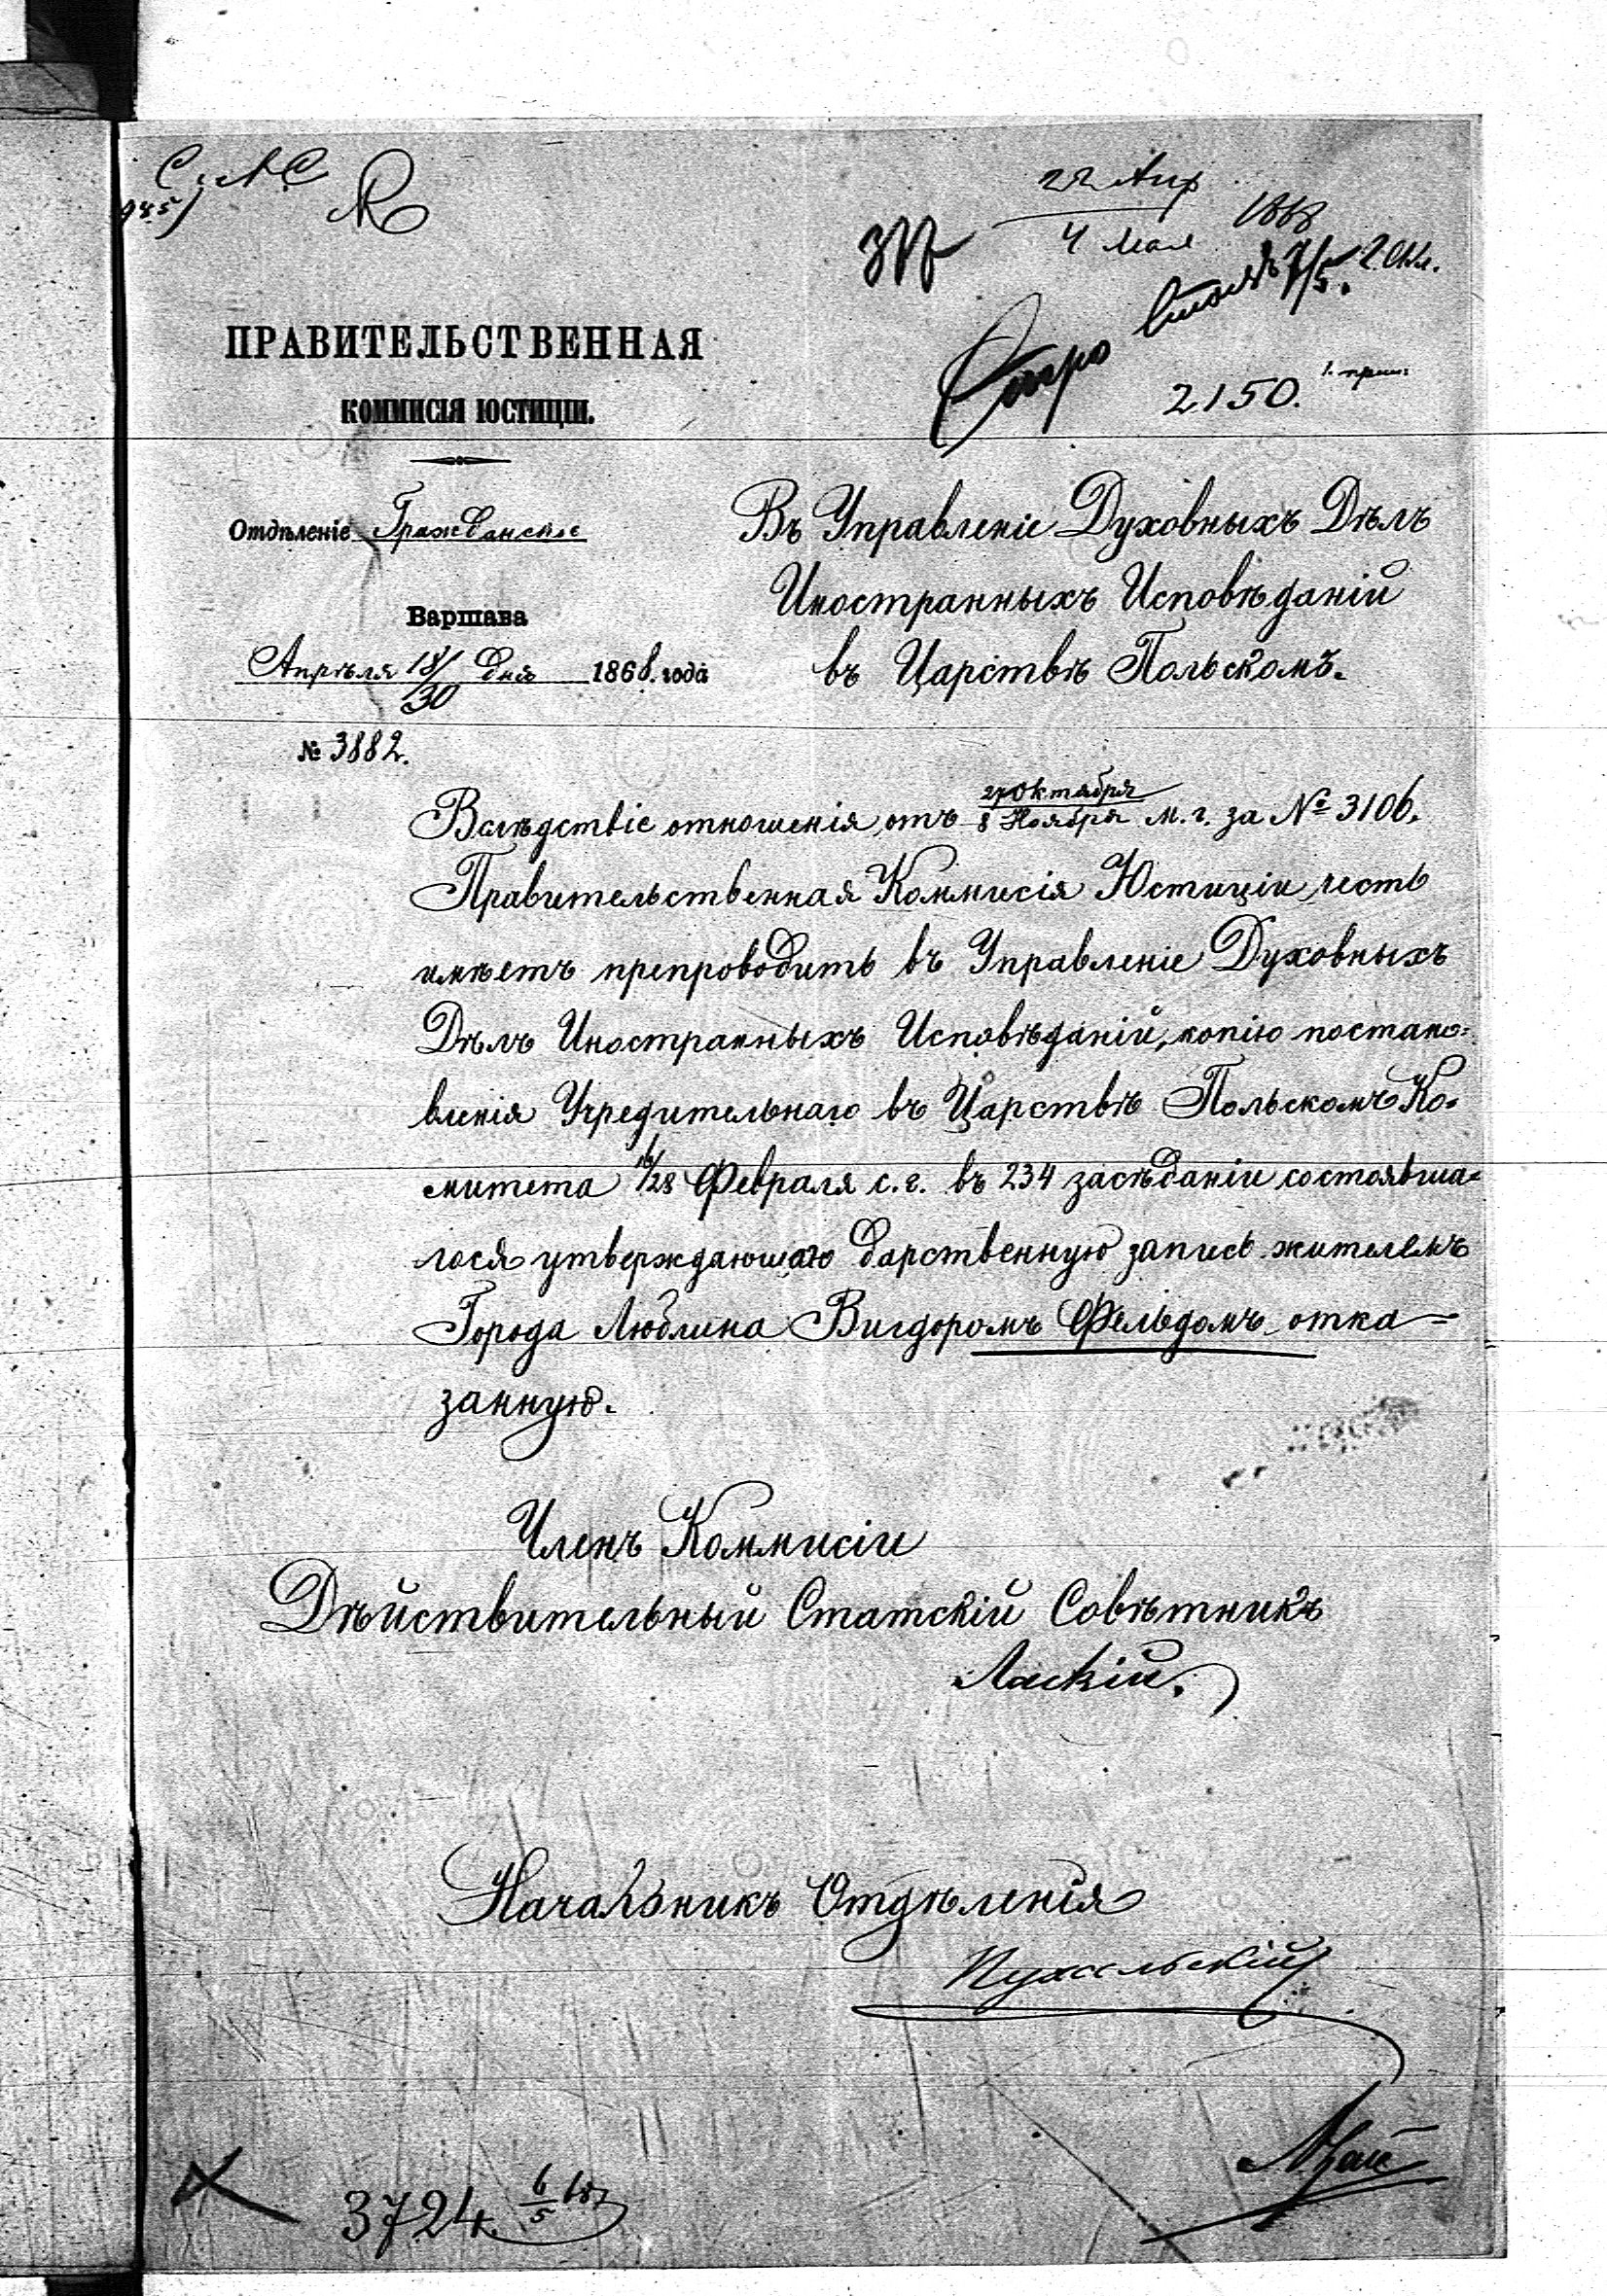 22 Апр
4 Мая 1868
2150.
ПРАВИТЕЛЬСТВЕННАЯ
КОММИСІЯ ЮСТИЦІИ.
Отдѣленіе Гражданское
Варшава
Апрѣля 18/30 дня 1868. года
№ 3882.
Въ Управленіе Духовныхъ Дѣлъ
Иностранныхъ Исповѣданій
въ Царствѣ Польскомъ.
Вслѣдствіе отношенія, отъ 27 Октября / 8 Ноября м. г. за № 3106.
Правительственная Коммисія Юстиціи, честь
имѣетъ препроводить въ Управленіе Духовныхъ
Дѣлъ Иностранныхъ Исповѣданій, копію постано=
вленія Учредительнаго въ Царствѣ Польскомъ Ко=
митета 16/28 Февраля с. г. въ 234 засѣданіи состоявша=
гося утверждающаго дарственную запись жителемъ
Города Люблина Вигдоромъ Фельдомъ отка=
занную.
Членъ Коммисіи
Дѣйствительный Статскій Совѣтникъ
Ласкій.
Начальникъ Отдѣленія
3724. 6/5 68